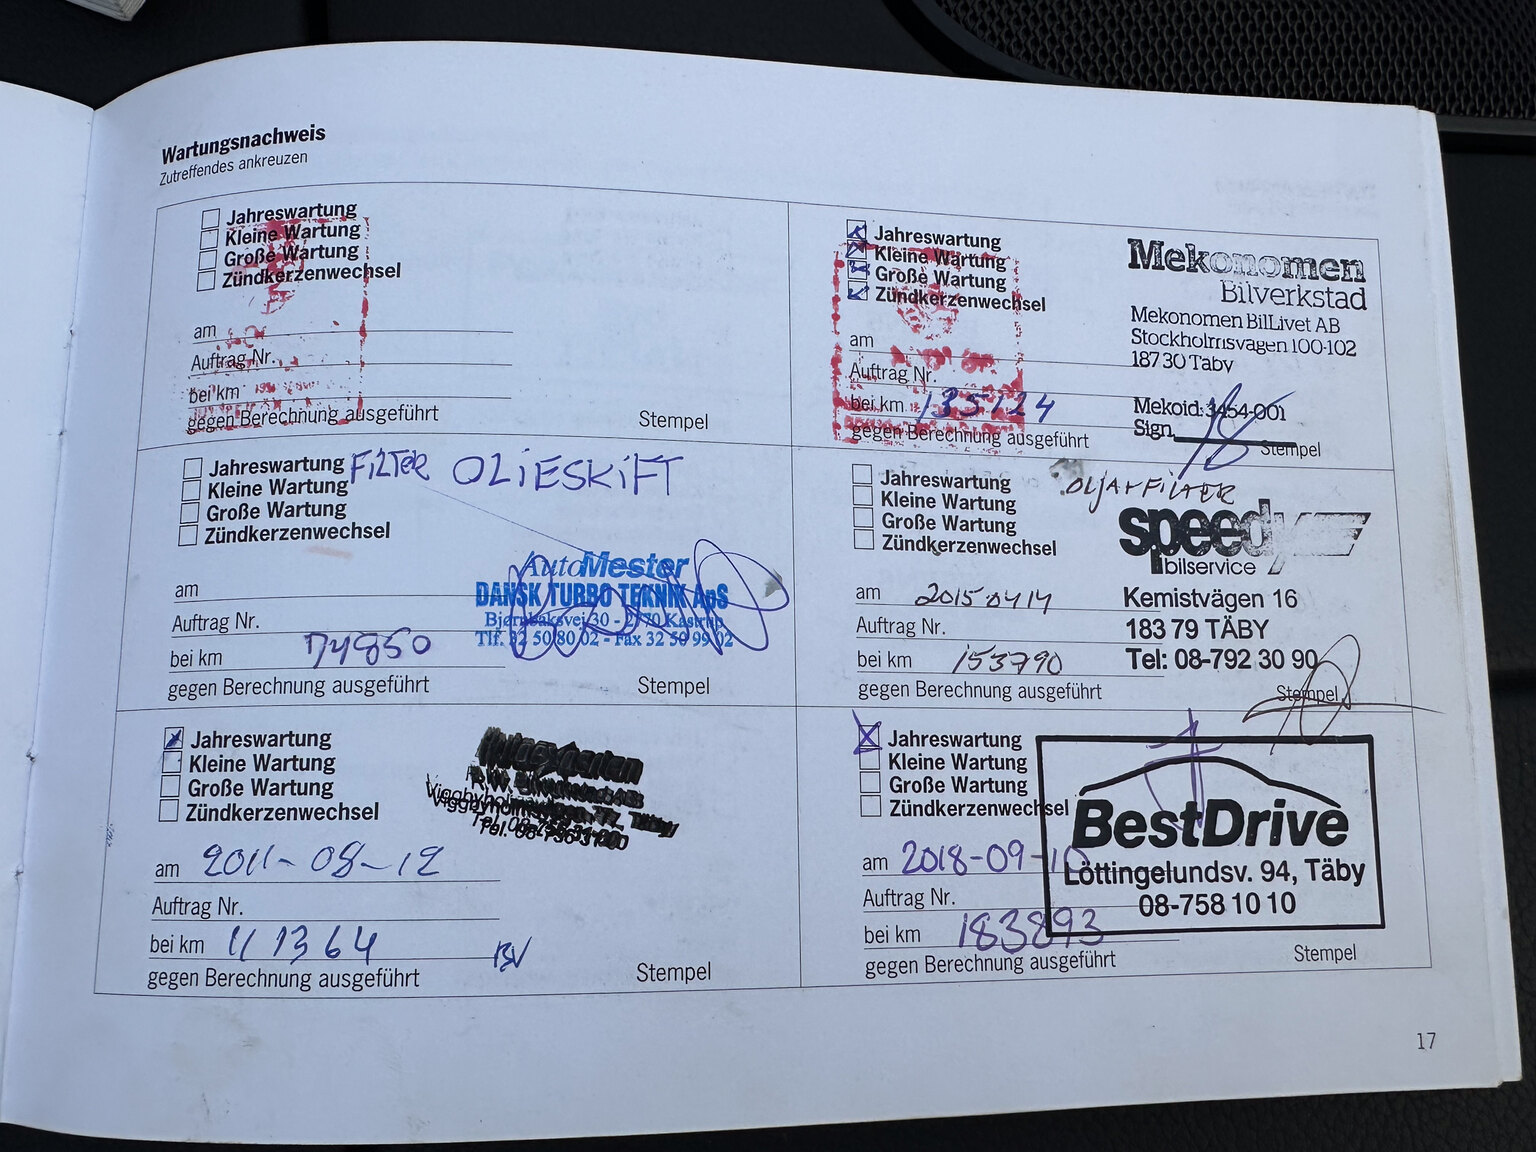 Wartungsnachweis
Zutreffendes ankreuzen
Jahreswartung
Kleine Wartung
Große Wartung
Zündkerzenwechsel
am
Auftrag Nr.
bei km
gegen Berechnung ausgeführt
Stempel
Jahreswartung
Kleine Wartung
Große Wartung
Zündkerzenwechsel
am
Auftrag Nr.
bei km 135124
gegen Berechnung ausgeführt
Mekonomen
Bilverkstad
Mekonomen BilLivet AB
Stockholmsvägen 100-102
187 30 Täby
Mekoid: 3454-001
Sign.
Stempel
Jahreswartung FILTER OLIESKIFT
Kleine Wartung
Große Wartung
Zündkerzenwechsel
am
Auftrag Nr.
bei km 74850
gegen Berechnung ausgeführt
AutoMester
DANSK TURBO TEKNIK ApS
Bjørnbaksvej 30 - 2770 Kastrup
Tlf. 32 50 80 02 - Fax 32 50 99 02
Stempel
Jahreswartung
Kleine Wartung
Große Wartung
Zündkerzenwechsel
am 2015 0414
Auftrag Nr.
bei km 153790
gegen Berechnung ausgeführt
OLJA+FILTER
speedy
bilservice
Kemistvägen 16
183 79 TÄBY
Tel: 08-792 30 90
Stempel
Jahreswartung
Kleine Wartung
Große Wartung
Zündkerzenwechsel
am 2011-08-12
Auftrag Nr.
bei km 111364 BV
gegen Berechnung ausgeführt
Stempel
Jahreswartung
Kleine Wartung
Große Wartung
Zündkerzenwechsel
am 2018-09-10
Auftrag Nr.
bei km 183893
gegen Berechnung ausgeführt
BestDrive
Löttingelundsv. 94, Täby
08-758 10 10
Stempel
17